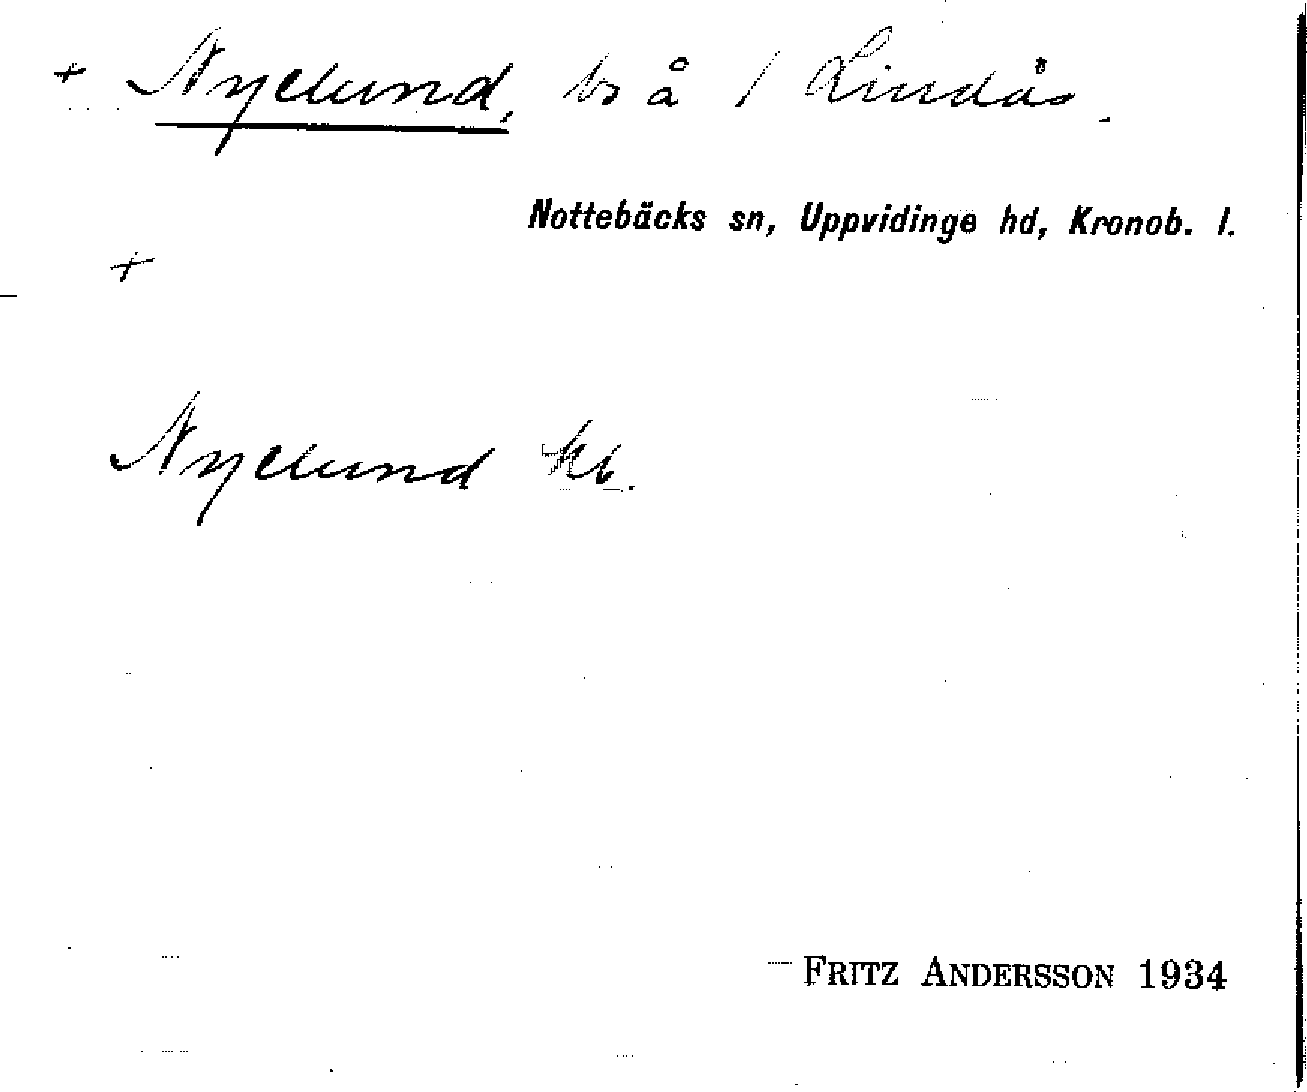 + Nyelund, bs å 1 Lindås.
Nottebäcks sn, Uppvidinge hd, Kronob. l.
+
Nyelund kb.
FRITZ ANDERSSON 1934